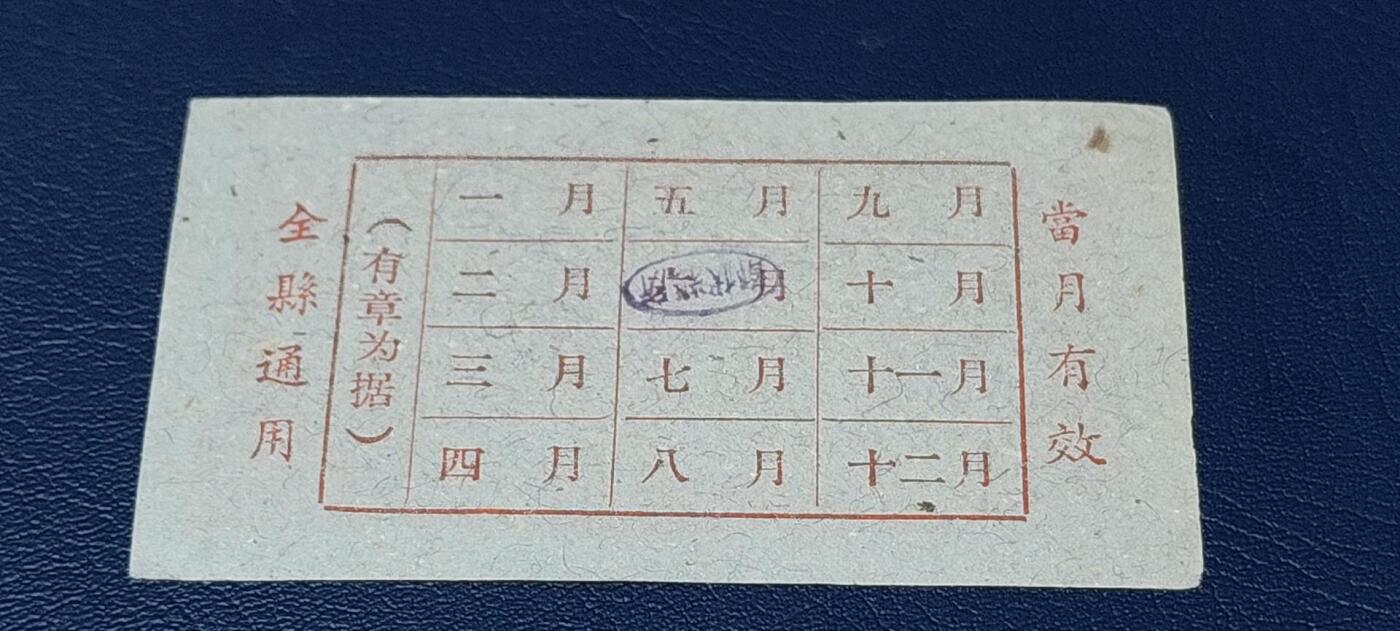 全縣通用
（有章为据）
一月 五月 九月
二月 月 十月
三月 七月 十一月
四月 八月 十二月
當月有效